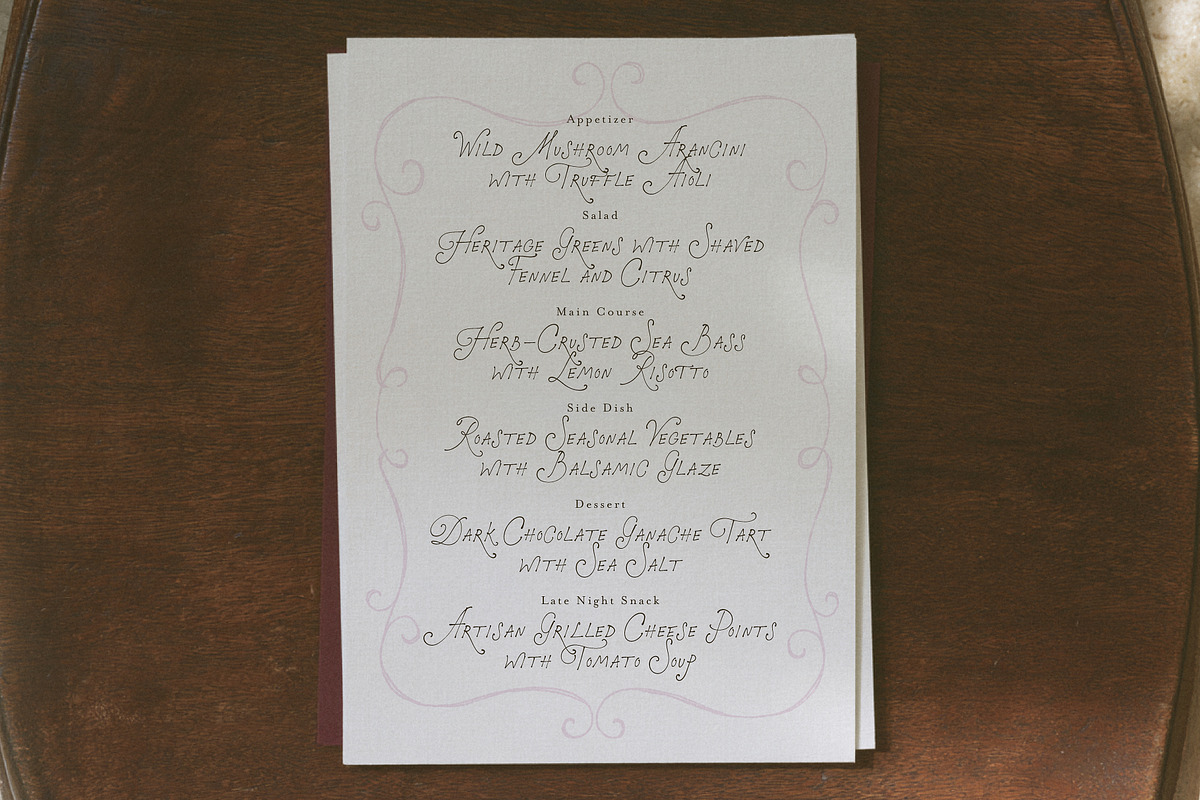 Appetizer
Wild Mushroom Arancini
with Truffle Aioli
Salad
Heritage Greens with Shaved
Fennel and Citrus
Main Course
Herb-Crusted Sea Bass
with Lemon Risotto
Side Dish
Roasted Seasonal Vegetables
with Balsamic Glaze
Dessert
Dark Chocolate Ganache Tart
with Sea Salt
Late Night Snack
Artisan Grilled Cheese Points
with Tomato Soup